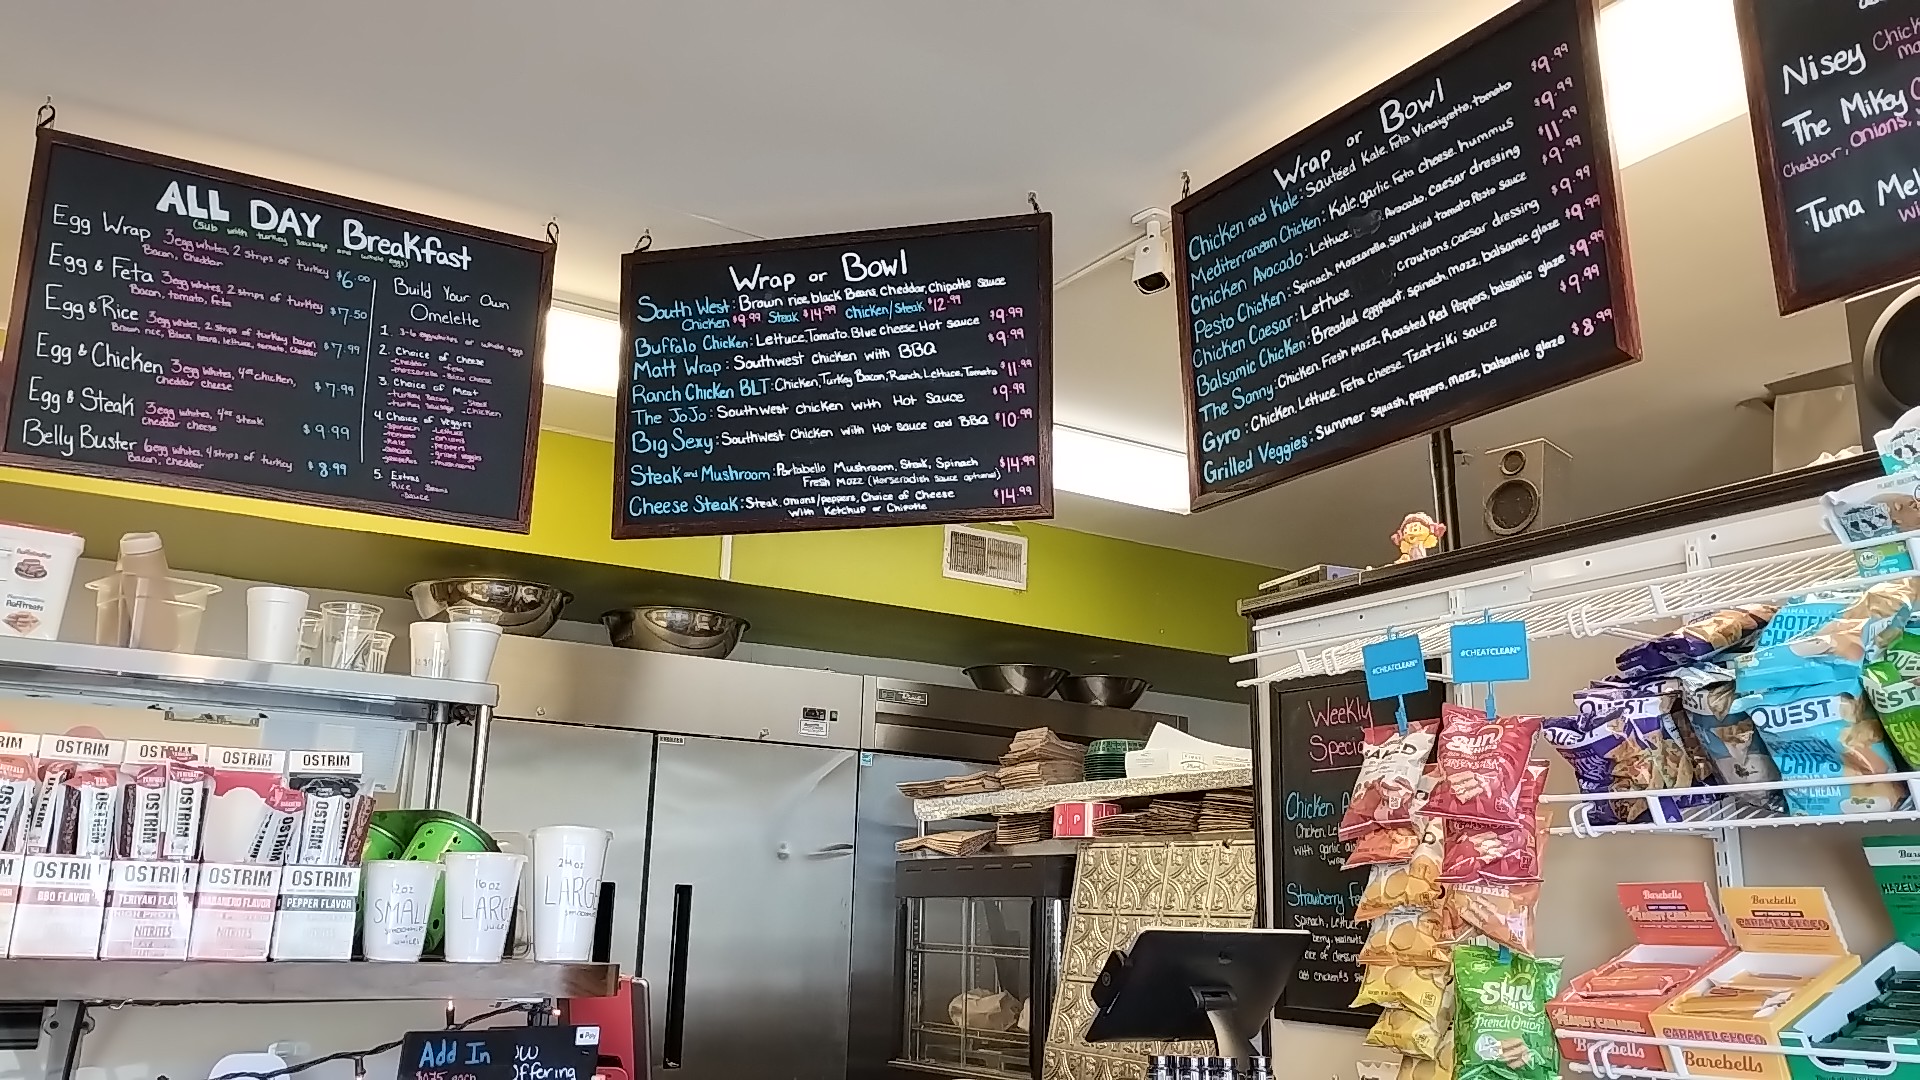 ALL DAY Breakfast
(Sub with turkey sausage and whole eggs)
Egg Wrap 3 egg whites, 2 strips of turkey $6.00
Bacon, Cheddar
Egg & Feta 3 egg whites, 2 strips of turkey $7.50
Bacon, tomato, feta
Egg & Rice 3 egg whites, 2 strips of turkey bacon $7.99
Brown rice, Black beans, lettuce, tomato, cheddar
Egg & Chicken 3 egg whites, 4oz chicken, $7.99
Cheddar cheese
Egg & Steak 3 egg whites, 4oz steak $9.99
Cheddar cheese
Belly Buster 6 egg whites, 4 strips of turkey $8.99
Bacon, Cheddar
Build Your Own
Omelette
1. 3-6 eggwhites or whole eggs
2. Choice of Cheese
-Cheddar -feta
-mozzarella -Bleu cheese
3. Choice of Meat
-turkey Bacon -Steak
-turkey Sausage -Chicken
4. Choice of Veggies
-Spinach -Lettuce
-tomato -onions
-Kale -peppers
-avocado -grilled veggies
-jalapeños -mushrooms
5. Extras
-Rice -Beans
-Sauce
Wrap or Bowl
South West: Brown rice, black Beans, cheddar, Chipotle sauce
Chicken $9.99 Steak $14.99 chicken/Steak $12.99
Buffalo Chicken: Lettuce, Tomato, Blue cheese, Hot sauce $9.99
Matt Wrap: Southwest chicken with BBQ $9.99
Ranch Chicken BLT: Chicken, Turkey Bacon, Ranch, Lettuce, Tomato $11.99
The JoJo: Southwest chicken with Hot Sauce $9.99
Big Sexy: Southwest Chicken with Hot Sauce and BBQ $10.99
Steak and Mushroom: Portabello Mushroom, Steak, Spinach $14.99
Fresh Mozz (Horseradish sauce optional)
Cheese Steak: Steak, onions/peppers, Choice of Cheese $14.99
with Ketchup or Chipotle
Wrap or Bowl
Chicken and Kale: Sautéed Kale, Feta, Vinaigrette, tomato $9.99
Mediterranean Chicken: Kale, garlic, Feta cheese, hummus $9.99
Chicken Avocado: Lettuce, Avocado, caesar dressing $11.99
Pesto Chicken: Spinach, Mozzarella, sun-dried tomato Pesto sauce $9.99
Chicken Caesar: Lettuce, croutons, caesar dressing $9.99
Balsamic Chicken: Breaded eggplant, spinach, mozz, balsamic glaze $9.99
The Sonny: Chicken, Fresh mozz, Roasted Red Peppers, balsamic glaze $9.99
Gyro: Chicken, Lettuce, Feta cheese, Tzatziki sauce $9.99
Grilled Veggies: Summer squash, peppers, mozz, balsamic glaze $8.99
Nisey Chick
The Mikey
Cheddar, onions,
Tuna Mel
Wi
#CHEATCLEAN
#CHEATCLEAN
Weekly
Specia
Chicken A
Chicken, Le
with garlic
Strawberry Fe
Spinach, Lettuce,
berry, walnuts,
of dressing
add chicken $3
Sun
CHEDDAR
Sun
CHIPS
French Onion
QUEST
QUEST
PROTEIN
CHIPS
QUEST
PROTEIN
CHIPS
CREAM
Barebells
Barebells
CARAMEL CHOCO
Barebells
CARAMEL CHOCO
Barebells
HAZELN
True
OSTRIM
OSTRIM
OSTRIM
OSTRIM
OSTRIM
OSTRIM
OSTRIM
OSTRIM
OSTRIM
OSTRIM
BBQ FLAVOR
TERIYAKI FLAV
HABANERO FLAVOR
PEPPER FLAVOR
NITRITES
12oz
SMALL
smoothies
Juices
16 oz
LARGE
Juice
24 oz
LARGE
smoothie
Add In
$0.75 each
ow
offering
Pay